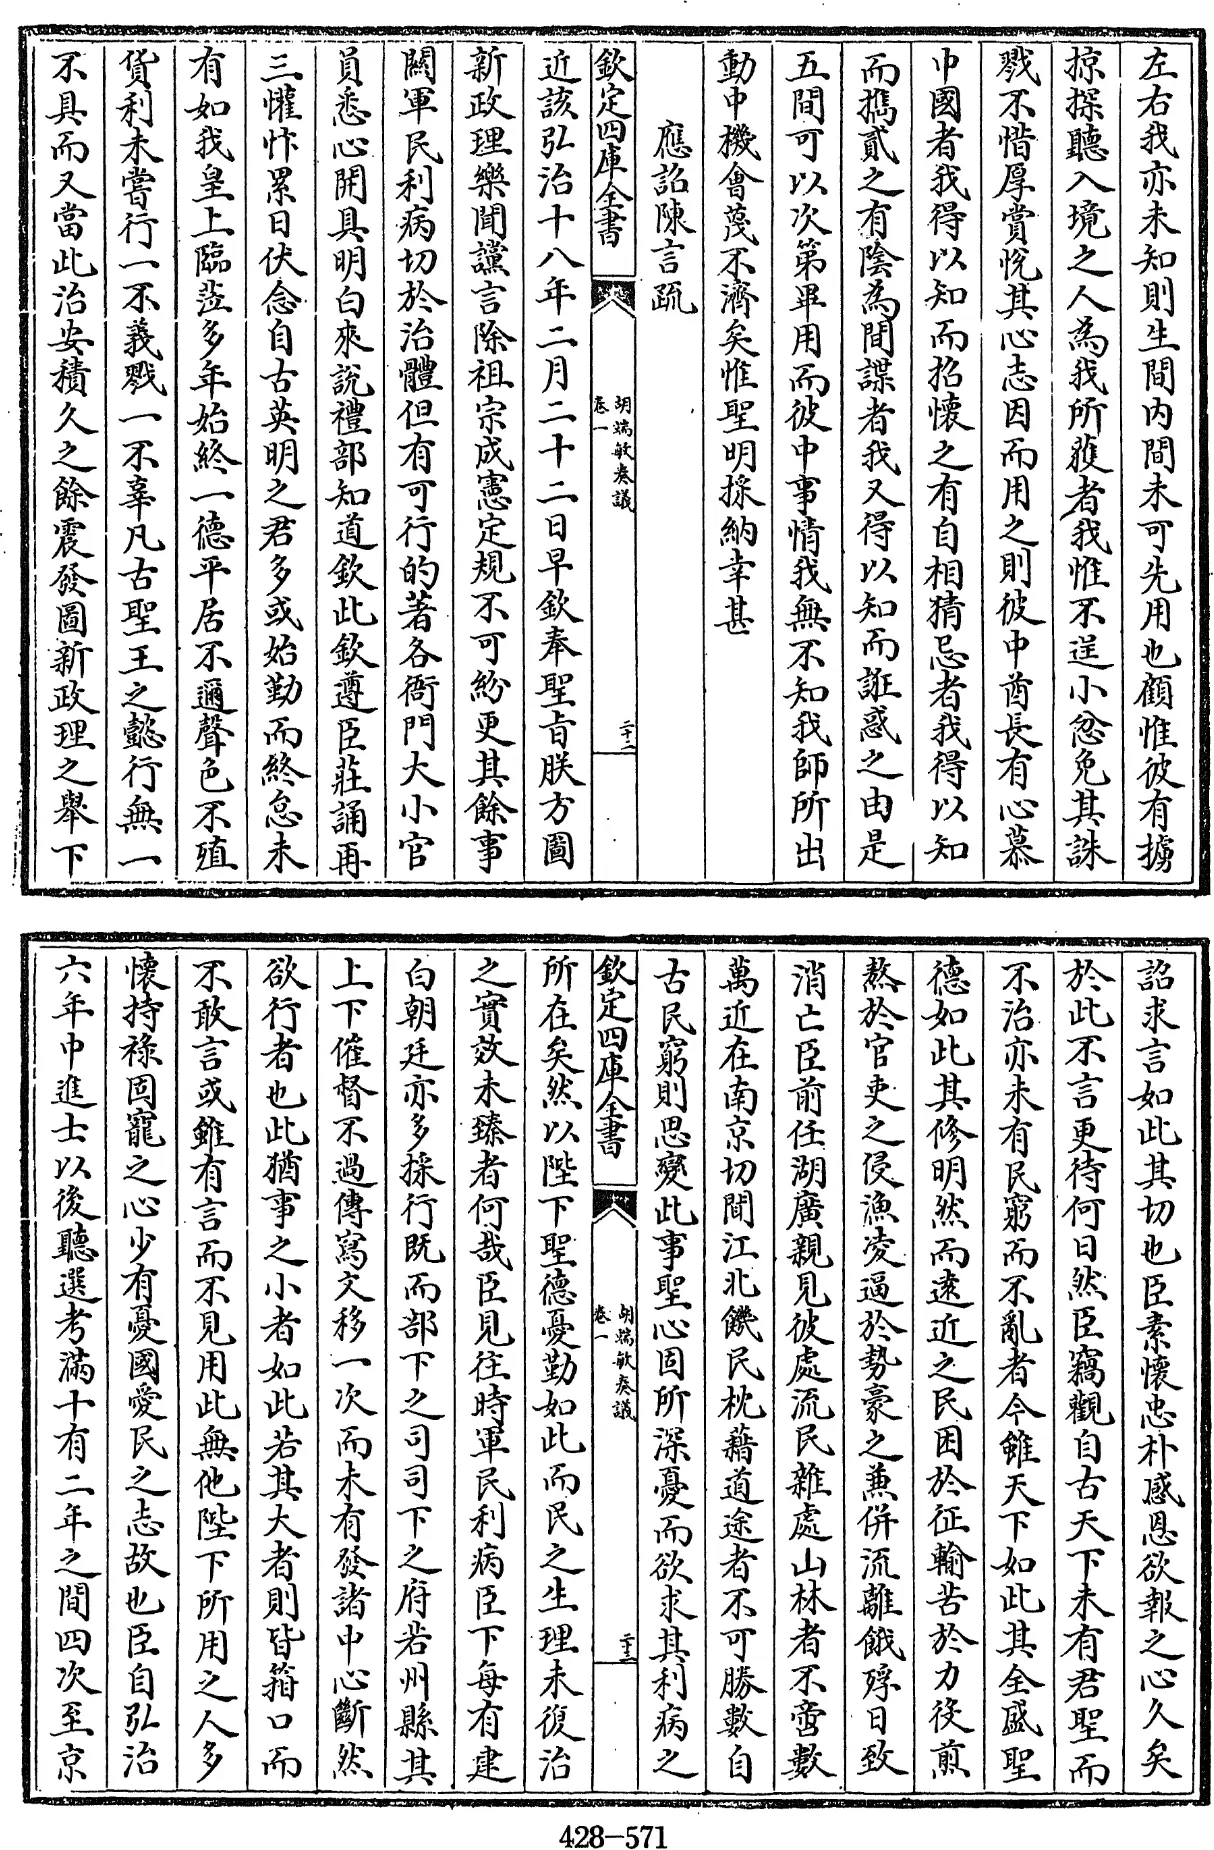 左右我亦未知則生間内間未可先用也顧惟彼有擄
掠探聽入境之人為我所獲者我惟不逞小忿免其誅
戮不惜厚賞悅其心志因而用之則彼中酋長有心慕
中國者我得以知而招懷之有自相猜忌者我得以知
而擕貳之有陰為間諜者我又得以知而誑惑之由是
五間可以次第畢用而彼中事情我無不知我師所出
動中機會蔑不濟矣惟聖明採納幸甚
應詔陳言疏
欽定四庫全書
胡端敏奏議
卷一
二十二
近該弘治十八年二月二十二日早欽奉聖旨朕方圖
新政理樂聞讜言除祖宗成憲定規不可紛更其餘事
關軍民利病切於治體但有可行的著各衙門大小官
員悉心開具明白來說禮部知道欽此欽遵臣莊誦再
三懽忭累日伏念自古英明之君多或始勤而終怠未
有如我皇上臨蒞多年始終一德平居不邇聲色不殖
貨利未嘗行一不義戮一不辜凡古聖王之懿行無一
不具而又當此治安積久之餘震發圖新政理之舉下
詔求言如此其切也臣素懷忠朴感恩欲報之心久矣
於此不言更待何日然臣竊觀自古天下未有君聖而
不治亦未有民窮而不亂者今雖天下如此其全盛聖
德如此其修明然而遠近之民困於征輸苦於力役煎
熬於官吏之侵漁凌逼於勢豪之兼併流離餓殍日致
消亡臣前任湖廣親見彼處流民雜處山林者不啻數
萬近在南京切聞江北饑民枕藉道途者不可勝數自
古民窮則思變此事聖心固所深憂而欲求其利病之
欽定四庫全書
胡端敏奏議
卷一
二十三
所在矣然以陛下聖德憂勤如此而民之生理未復治
之實效未臻者何哉臣見往時軍民利病臣下每有建
白朝廷亦多採行既而部下之司司下之府若州縣其
上下催督不過傳寫文移一次而未有發諸中心斷然
欲行者也此猶事之小者如此若其大者則皆箝口而
不敢言或雖有言而不見用此無他陛下所用之人多
懷持祿固寵之心少有憂國愛民之志故也臣自弘治
六年中進士以後聽選考滿十有二年之間四次至京
428-571